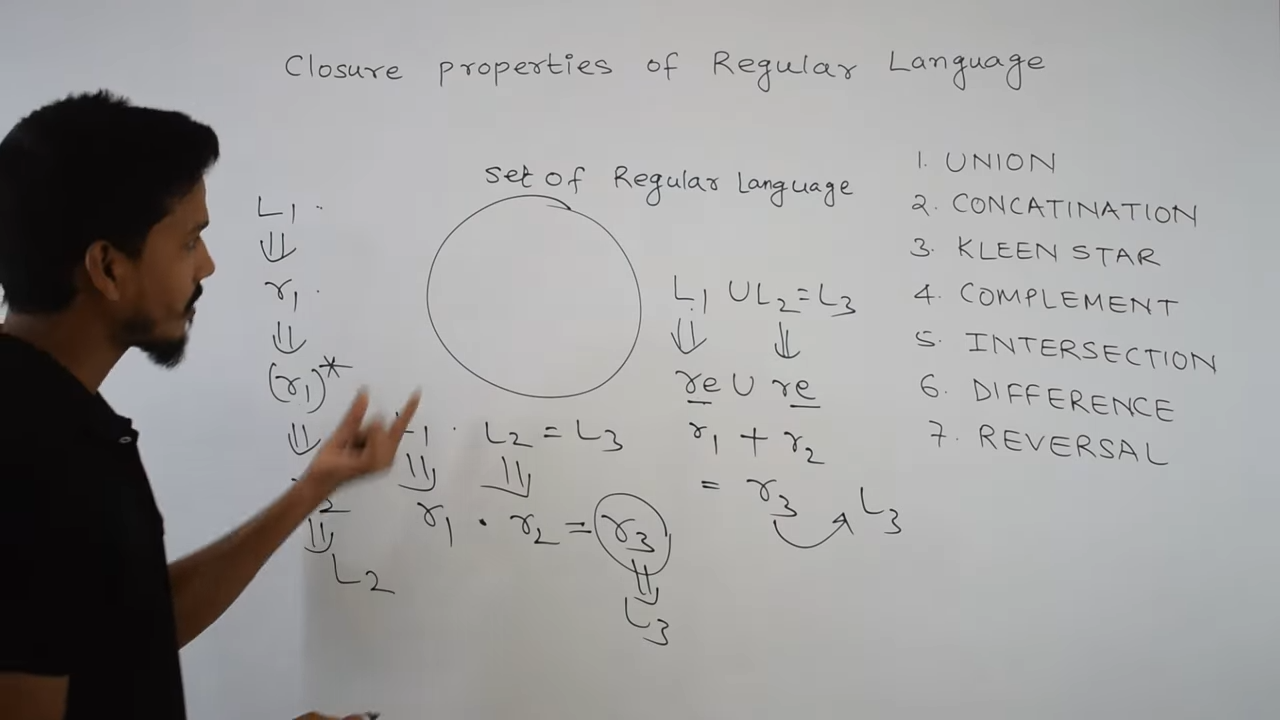 Closure properties of Regular Language
set of Regular Language
L1 .
⇓
r1 .
⇓
(r1)*
⇓
2
⇓
L2
1 . L2 = L3
⇓ ⇓
r1 . r2 = r3
⇓
L3
L1 ∪ L2 = L3
⇓ ⇓
re ∪ re
r1 + r2
= r3 L3
1. UNION
2. CONCATINATION
3. KLEEN STAR
4. COMPLEMENT
5. INTERSECTION
6. DIFFERENCE
7. REVERSAL